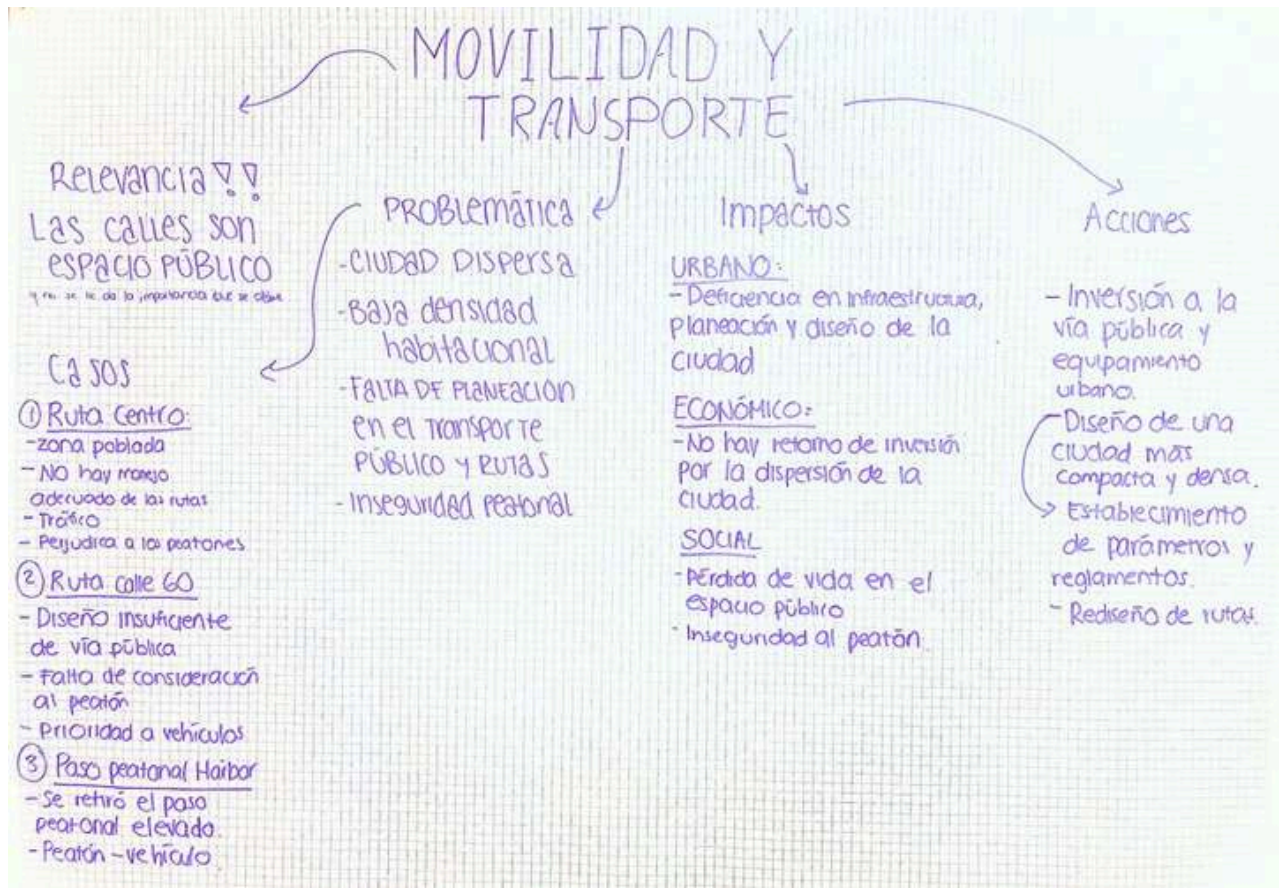 MOVILIDAD Y
TRANSPORTE
Relevancia !!
Las calles son
espacio público
y no se le da la importancia que se debe
Casos
① Ruta Centro:
- zona poblada
- NO hay manejo
adecuado de las rutas
- Tráfico
- Perjudica a los peatones
② Ruta calle 60
- Diseño insuficiente
de vía pública
- Falta de consideración
al peatón
- Prioridad a vehículos
③ Paso peatonal Harbor
- Se retiró el paso
peatonal elevado.
- Peatón - vehículo
PROBLEMÁTICA
- CIUDAD DISPERSA
- Baja densidad
habitacional
- FALTA DE PLANEACIÓN
en el transporte
PÚBLICO Y RUTAS
- Inseguridad peatonal
Impactos
URBANO:
- Deficiencia en infraestructura,
planeación y diseño de la
ciudad
ECONÓMICO:
- No hay retorno de inversión
por la dispersión de la
ciudad.
SOCIAL
- Pérdida de vida en el
espacio público
- Inseguridad al peatón.
Acciones
- Inversión a la
vía pública y
equipamiento
urbano.
- Diseño de una
ciudad más
compacta y densa.
Establecimiento
de parámetros y
reglamentos.
- Rediseño de rutas.